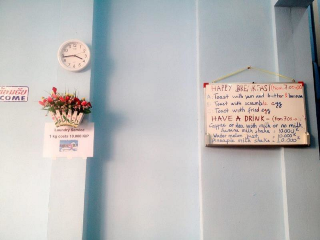 COME
Laundry Service
1 kg costs 10.000 KIP
HAPPY BREAKFAST
Toast with jam and butter + banana
Toast with scramble egg
Toast with fried egg
HAVE A DRINK
Coffee or tea with milk or no milk
banana milk shake : 10.000 K
Water melon just : 10.000 K
Pineapple milk shake : 10.000 K